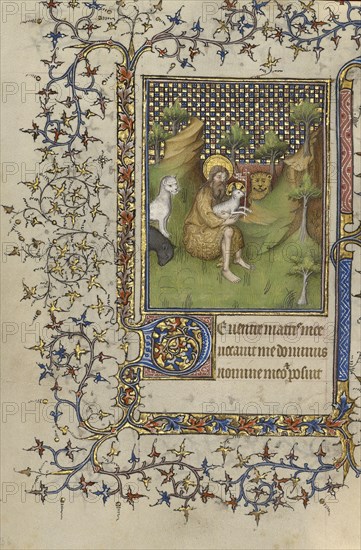 De uentre matris mee
uocauit me dominus
nomine meo posuit